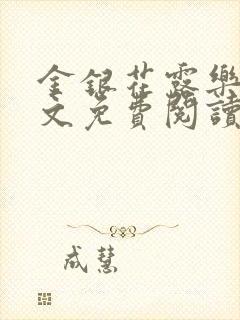 金銀花露樂
文免費閱讀
成慧